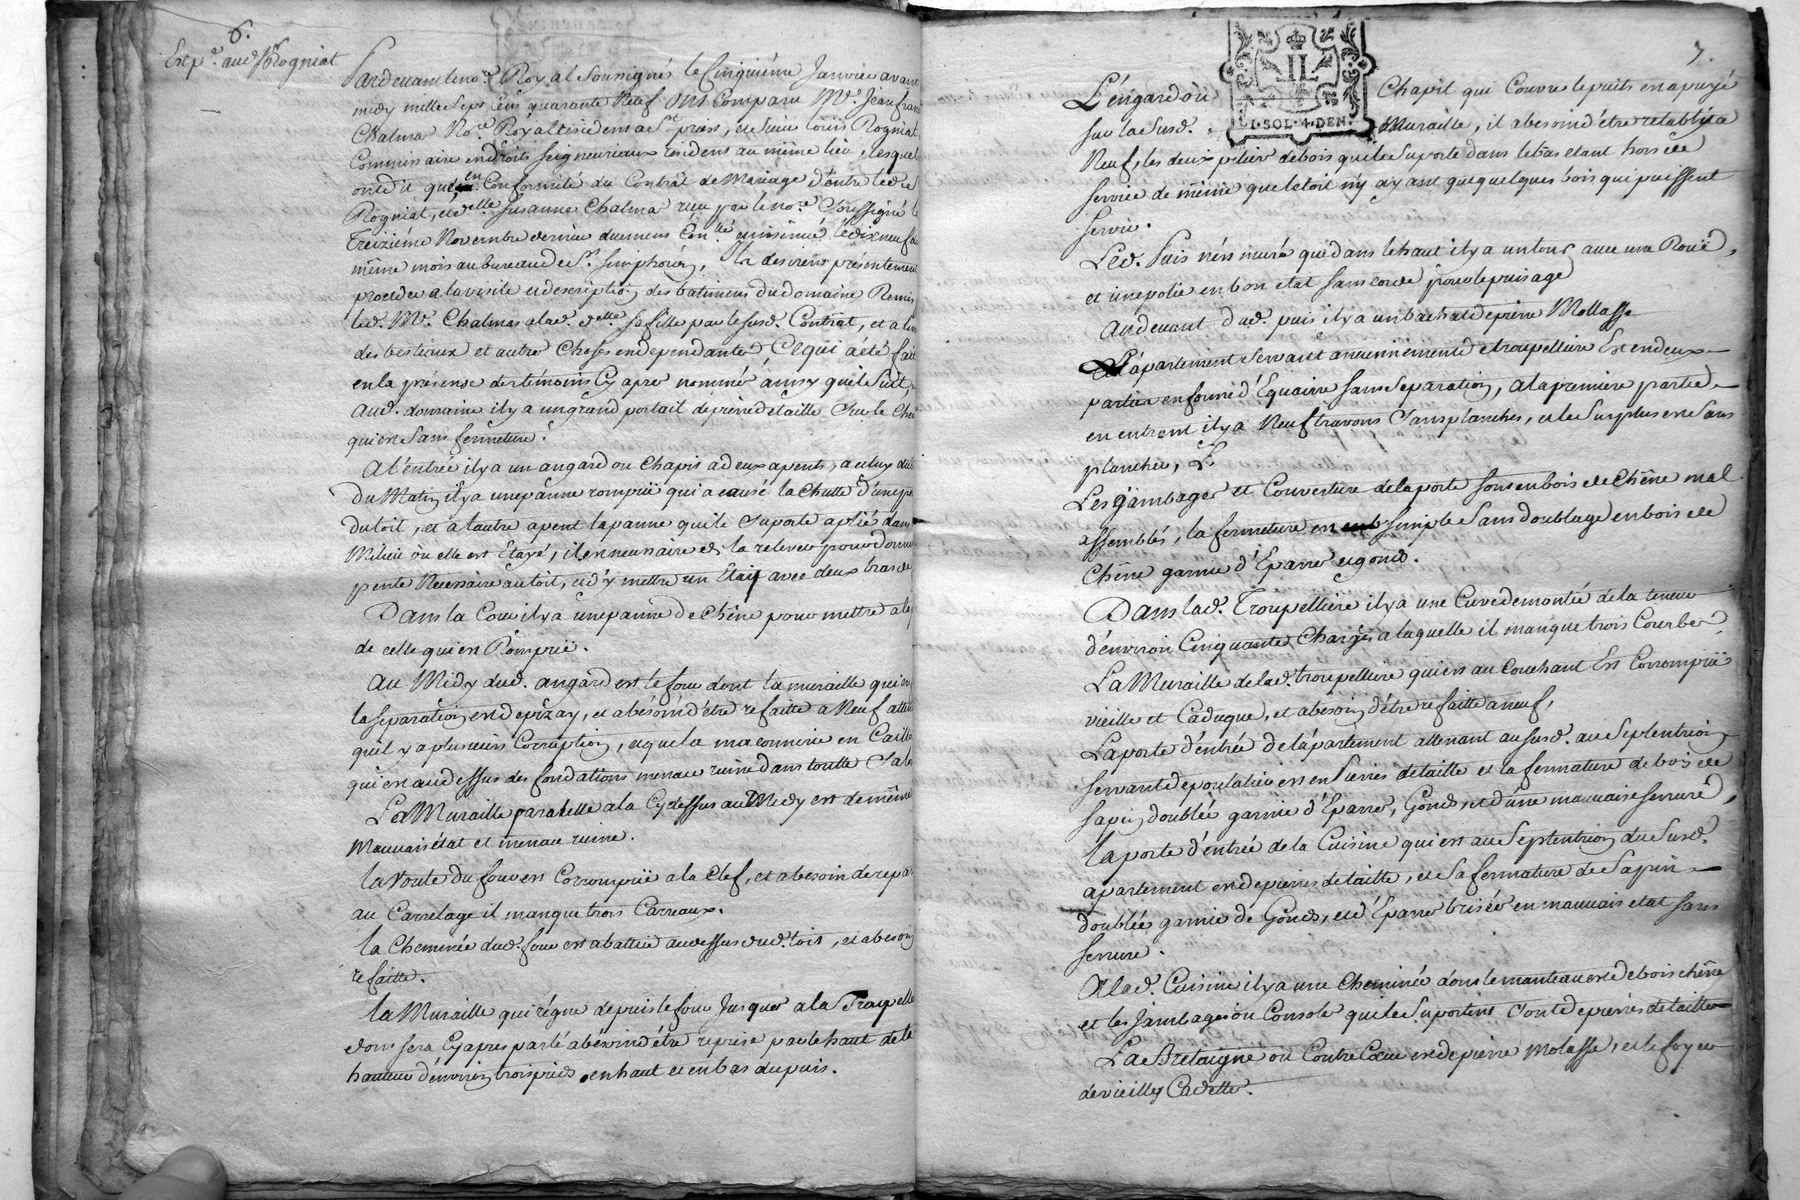 6.
Exp.e aud. Sr Rogniat
Pardevant le no.re Royal Soussigné le Cinquiéme Janvier avant
midy mille Sept Cent quarante Neuf ont Comparu M.e Jean fran
Chalma No.re Royal résidens a St priest, et Sieur Louis Rogniat
Commissaire en droits Seigneuriaux résidens au même lieu, lesquel
ont dit qu'en Conformité du Contrat de Mariage d'Entre led. Sr
Rogniat, et d.elle Susanne Chalma reçu par le no.re Soussigné le
Treiziéme Novembre dernier duement Con.llé insinué le dix neuf du
même mois au bureau de St. Simphorien, Il a desirée présentement
proceder a la visite et description des batimens du domaine Remis
led. M.e Chalmas a lad. d.elle Sa fille par le Susd. Contrat, et a l'in
des bestiaux et autres Choses en dependantes, Ce qui a été fait
en la présense des témoins Cy apres nommés ainsy qu'il Suit,
Aud. domaine il y a un grand portail de pierre de taille Sur le Che
qui est Sans fermeture.
A l'entrée il y a un angard ou Chapit a deux apents, a celuy du
Du Matin il y a une panne rompüe qui a causé la Chutte d'une par
du toit, et a l'autre apent la panne qui le Suporte a plié dans
Milieu ou elle est Etayé, il est necessaire de la relever pour donner
pente Necessaire au toit, et d'y mettre un Etaij avec deux bras de
Dans la Cour il y a une panne de Chêne pour mettre a la p
de celle qui est Rompüe.
Au Midy dud. angard est le four dont la muraille qui en
la Separation est de pizay, et a besoin d'être refaitte a Neuf atten
qu'il y a plusieurs Corruption, et que la maconnerie en Caillo
qui est au dessus des fondations menace ruine dans toutte Sa lo
La Muraille paralelle a la Cydessus au Midy est de même
Mauvais état et menace ruine.
La Voute du four est Corrompüe a la Clef, et a besoin de repar
au Carrelage il manque trois Carreaux.
La Cheminée dud. four est abattüe au dessus dud. toit, et a besoin
refaitte.
La Muraille qui régne depuis le four Jusques a la Trapelle
dont sera Cy apres parlé a bésoin d'étre reprise par le haut de la
hauteur d'environ trois pieds en haut et en bas du puis.
7.
I·SOL·4·DEN.
L'éngard ou Chapit qui Couvre le puits en apuyé
sur la Susd. Muraille, il a besoin d'être retably a
Neuf, les deux pilier de bois qui le Suporte dans le bas etant hors de
servie de même que le toit n'y ayant que quelques bois qui puissent
servir.
Led. Puis n'és muré que dans le haut il y a un tour avec une Rouë,
et une polie en bon etat sans corde pour le puisage
Audevant dud. puis il y a un bachat de pierre Mollasse
L'apartement Servant anciennement de troupelliere Est en deux
parties en forme d'Equaire Sans Separation, a la premiere partie
en entrant il y a Neuf travons Sans planches, et le Surplus est Sans
plancher,
Les Jambages et Couverture de la porte Sont en bois de Chêne mal
assemblés, la fermeture en est Simple Sans doublage en bois de
Chêne garnie d'Eparres et gonds.
Dans lad. Troupelliere il y a une Cuve demontée de la teneur
d'environ Cinquante Charges a laquelle il manque trois Courbes,
La Muraille de lad. troupelliere qui est au Couchant Est Corrompüe
vieille et Caduque, et a bésoin d'être refaitte a neuf,
La porte d'entrée de l'apartement attenant au susd. au Septentrion
servant de poulalier est en Pierres de taille et la fermature de bois de
sapin doublée garnie d'Eparres, Gonds, et d'une mauvaise serrure,
La porte d'entrée de la Cuisine qui est au Septentrion du Susd.
apartement est de pierres de taille, et Sa fermature de Sapin
doublée garnie de Gonds, et d'Eparres brisées en mauvais etat sans
serrure.
A lad. Cuisine il y a une Cheminée dont le manteau est de bois chêne
et les Jambages ou Consoles qui le Suportent Sont de pierres de taille
La Bretaigne ou Contre Cœur est de pierre Molasse, et le foyer
de vieilles Cadettes.